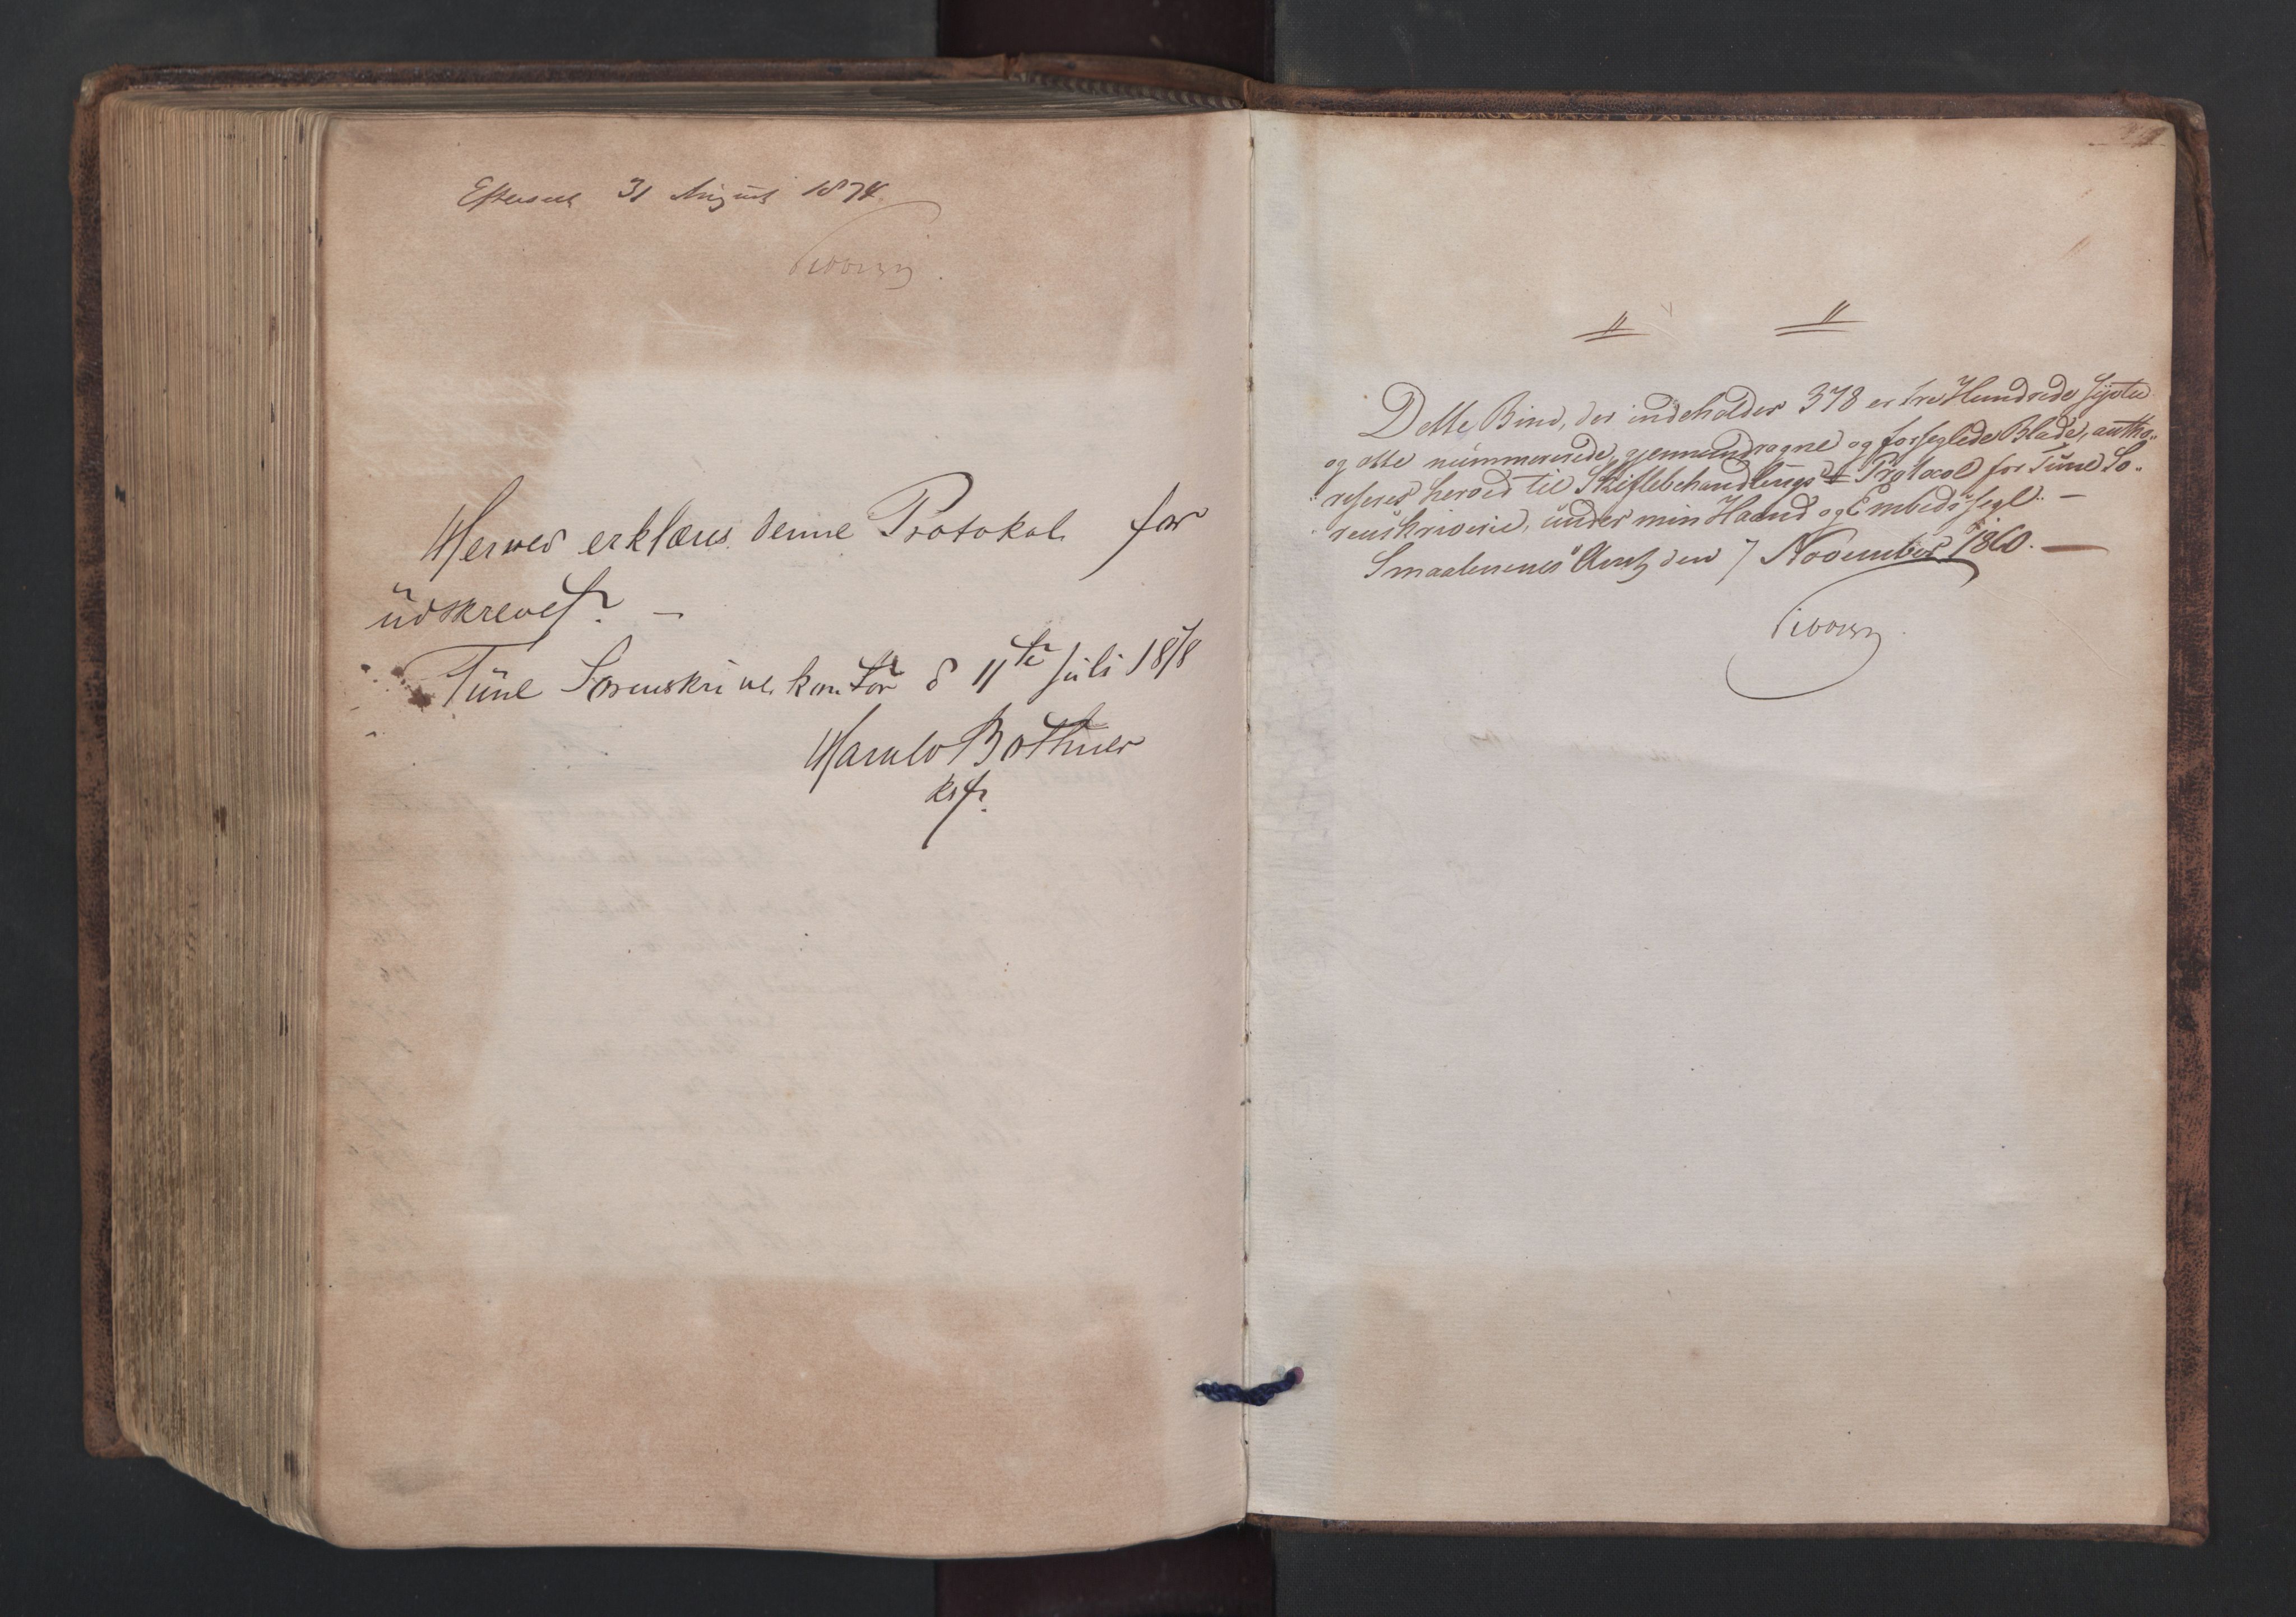 Efterseet 31 August 1874.
Herved erklæres denne Protokol for
üdskrevet. —
Tüne Sorenskriverkontor d 11te Juli 1878
Harald Bothner
kst.
Dette Bind, der indeholder 378 er tre Hundrede syvti
og otte nümmererede, gjennemdragne og forseglede Blade, autho„
riseres herved til Skiftebehandlings Protocol for Tüne So„
renskriverie, ünder min Haand og Embedssegl. —
Smaalenenes Amt den 7 November 1860. —